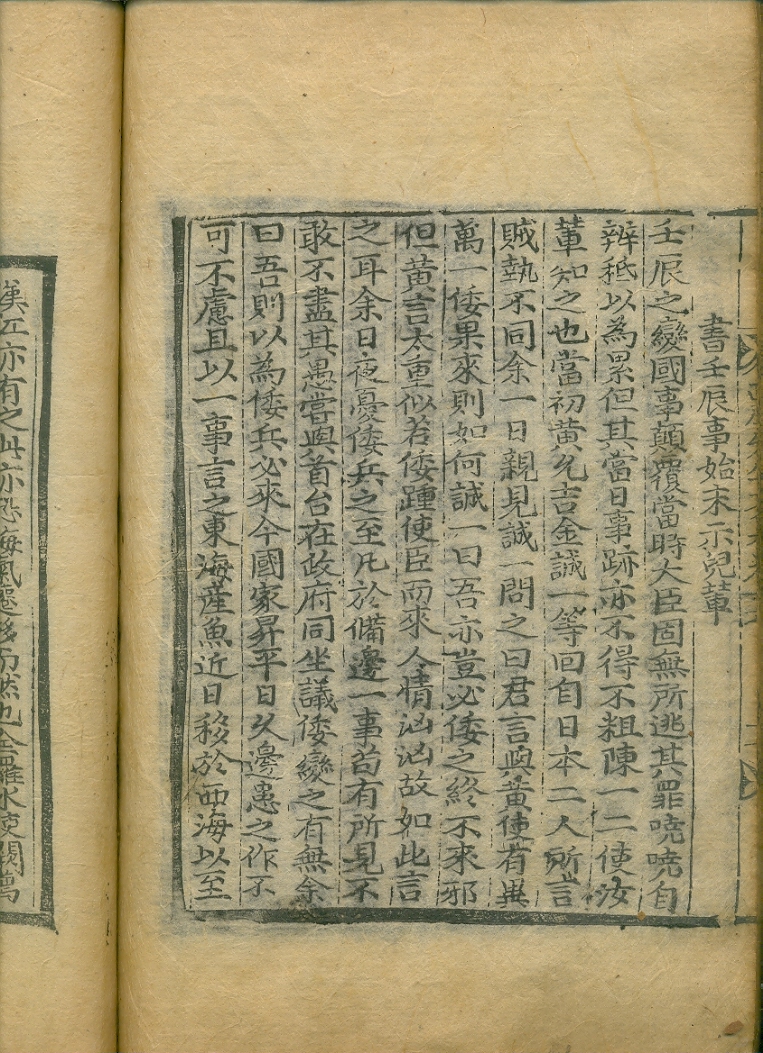 書壬辰事始末示兒軰
壬辰之變國事顚覆當時大臣固無所逃其罪哓哓自
辨秪以為累但其當日事跡亦不得不粗陳一二使汝
軰知之也當初黃允吉金誠一等回自日本二人所言
賊執不同余一日親見誠一問之曰君言與黃使有異
萬一倭果來則如何誠一曰吾亦豈必倭之終不來邪
但黃言太重似若倭踵使臣而來人情汹汹故如此言
之耳余日夜憂倭兵之至凡於備邊一事茍有所見不
敢不盡其愚嘗與首台在政府同坐議倭變之有無余
曰吾則以為倭兵必來今國家昇平日久邊患之作不
可不慮且以一事言之東海產魚近日移於西海以至
漢江亦有之此亦恐海氣遷移而然也全羅水使闕萬